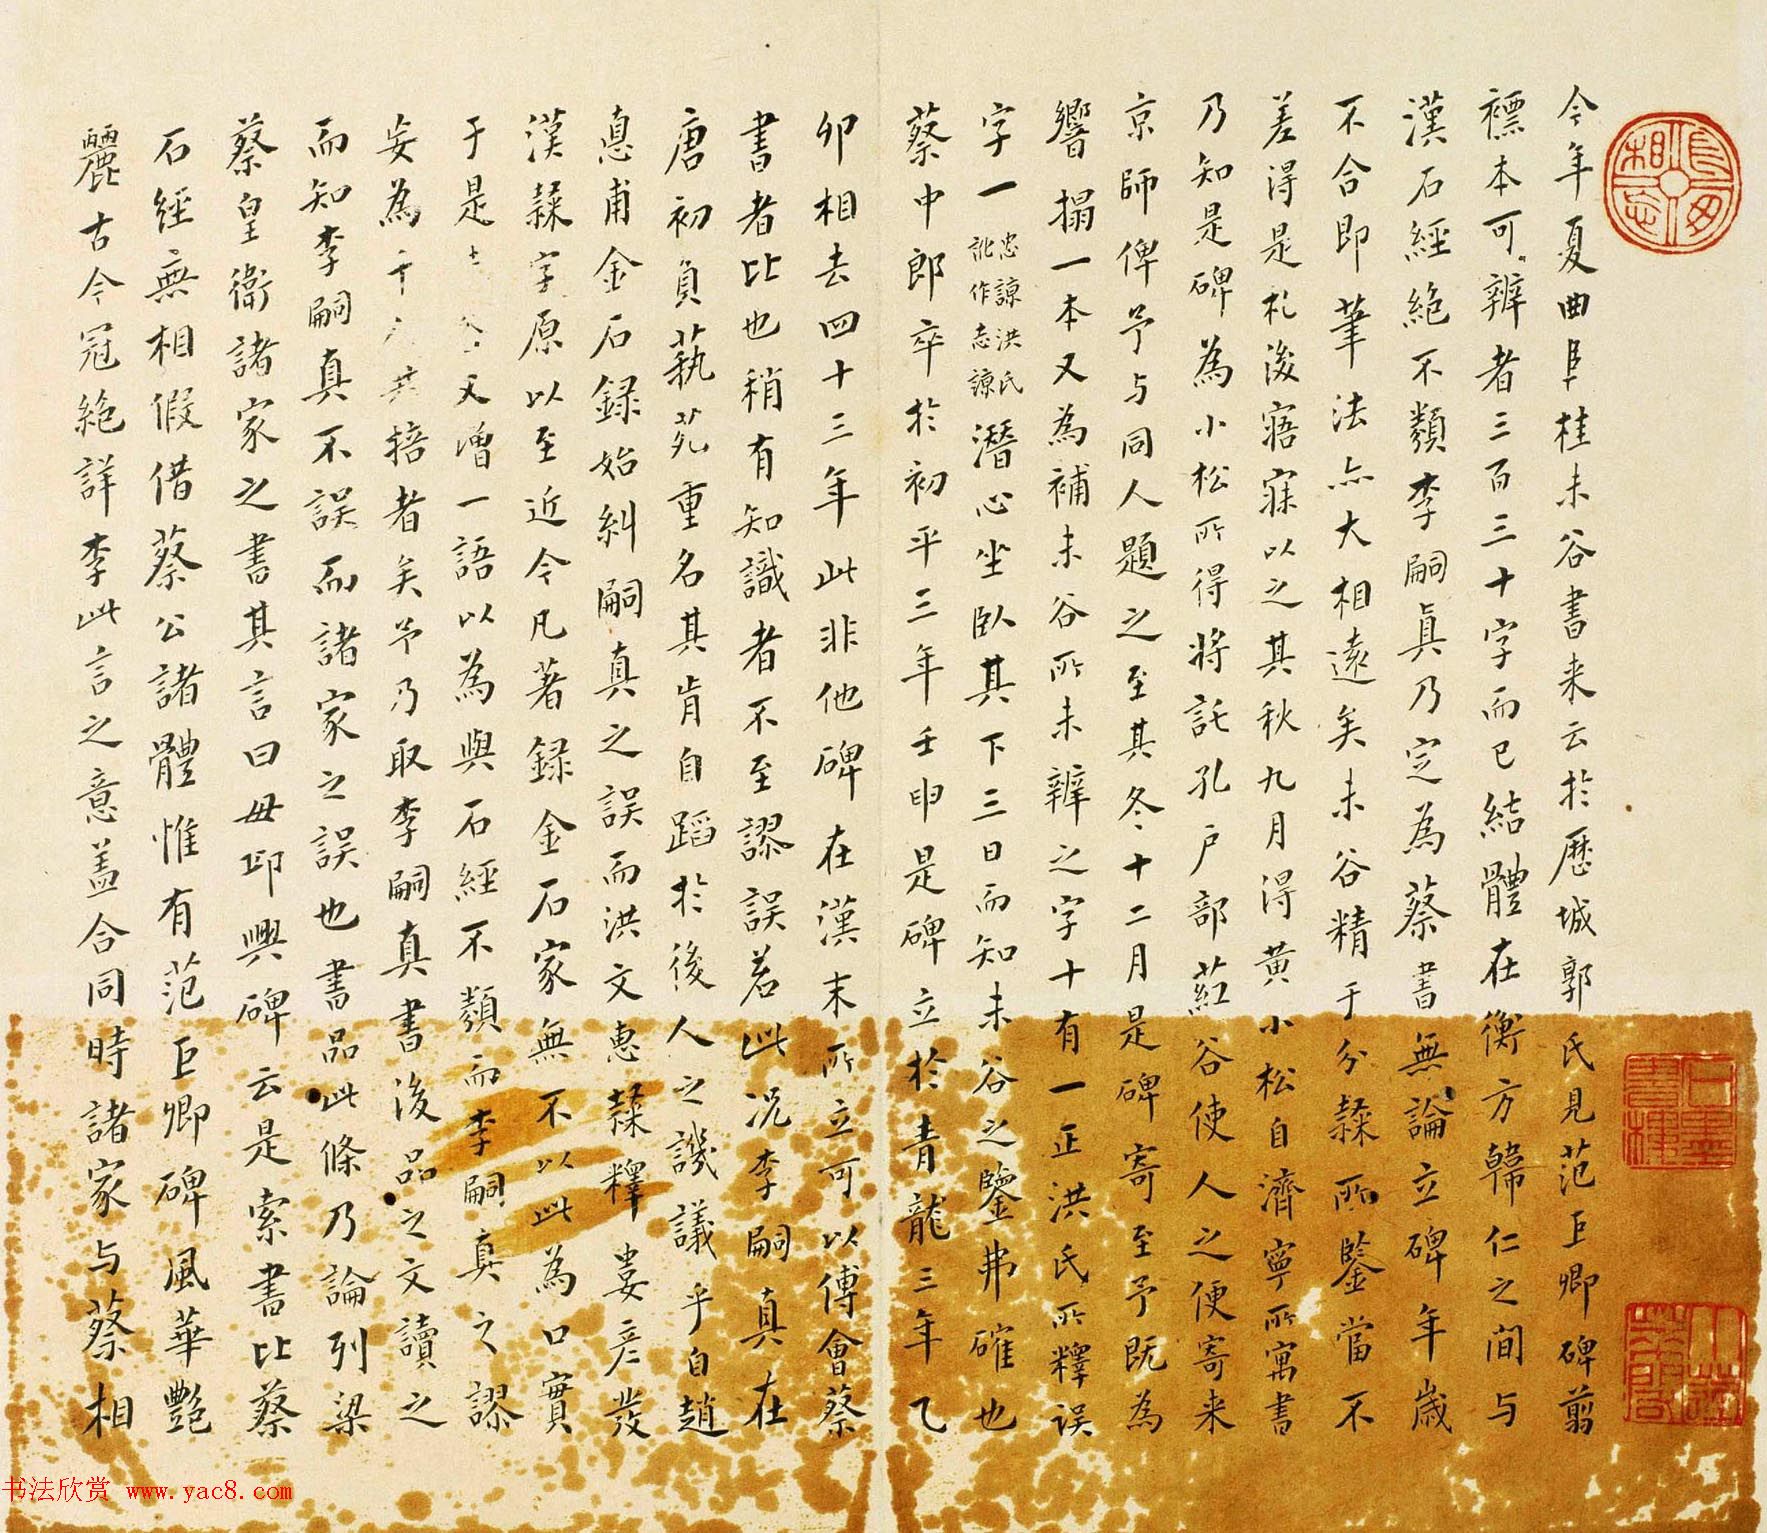 今年夏曲阜桂未谷書来云於歷城郭氏見范巨卿碑翦
褾本可辨者三百三十字而已結體在衡方韓仁之間与
漢石經絶不類李嗣真乃定為蔡書無論立碑年歲
不合即筆法亦大相遠矣未谷精于分隸所鑒當不
差得是札後寤寐以之其秋九月得黄小松自濟寧所寓書
乃知是碑為小松所得將託孔户部葒谷使人之便寄来
京師俾予与同人題之至其冬十二月是碑寄至予既為
響搨一本又為補未谷所未辨之字十有一正洪氏所釋误
字一忠諒洪氏訛作志諒潛心坐卧其下三日而知未谷之鑒弗確也
蔡中郎卒於初平三年壬申是碑立於青龍三年乙
卯相去四十三年此非他碑在漢末所立可以傅會蔡
書者比也稍有知識者不至謬誤若此况李嗣真在
唐初負蓺苑重名其肯自蹈於後人之譏議乎自趙
悳甫金石録始糾嗣真之誤而洪文惠隸釋婁彦發
漢隸字原以至近今凡著録金石家無不以此為口實
于是又增一語以為與石經不類而李嗣真之謬
妄為掊者矣予乃取李嗣真書後品之文讀之
而知李嗣真不誤而諸家之誤也書品此條乃論列梁
蔡皇衛諸家之書其言曰毌邱興碑云是索書比蔡
石經無相假借蔡公諸體惟有范巨卿碑風華艷
麗古今冠絶詳李此言之意盖合同時諸家与蔡相
书法欣赏 www.yac8.com